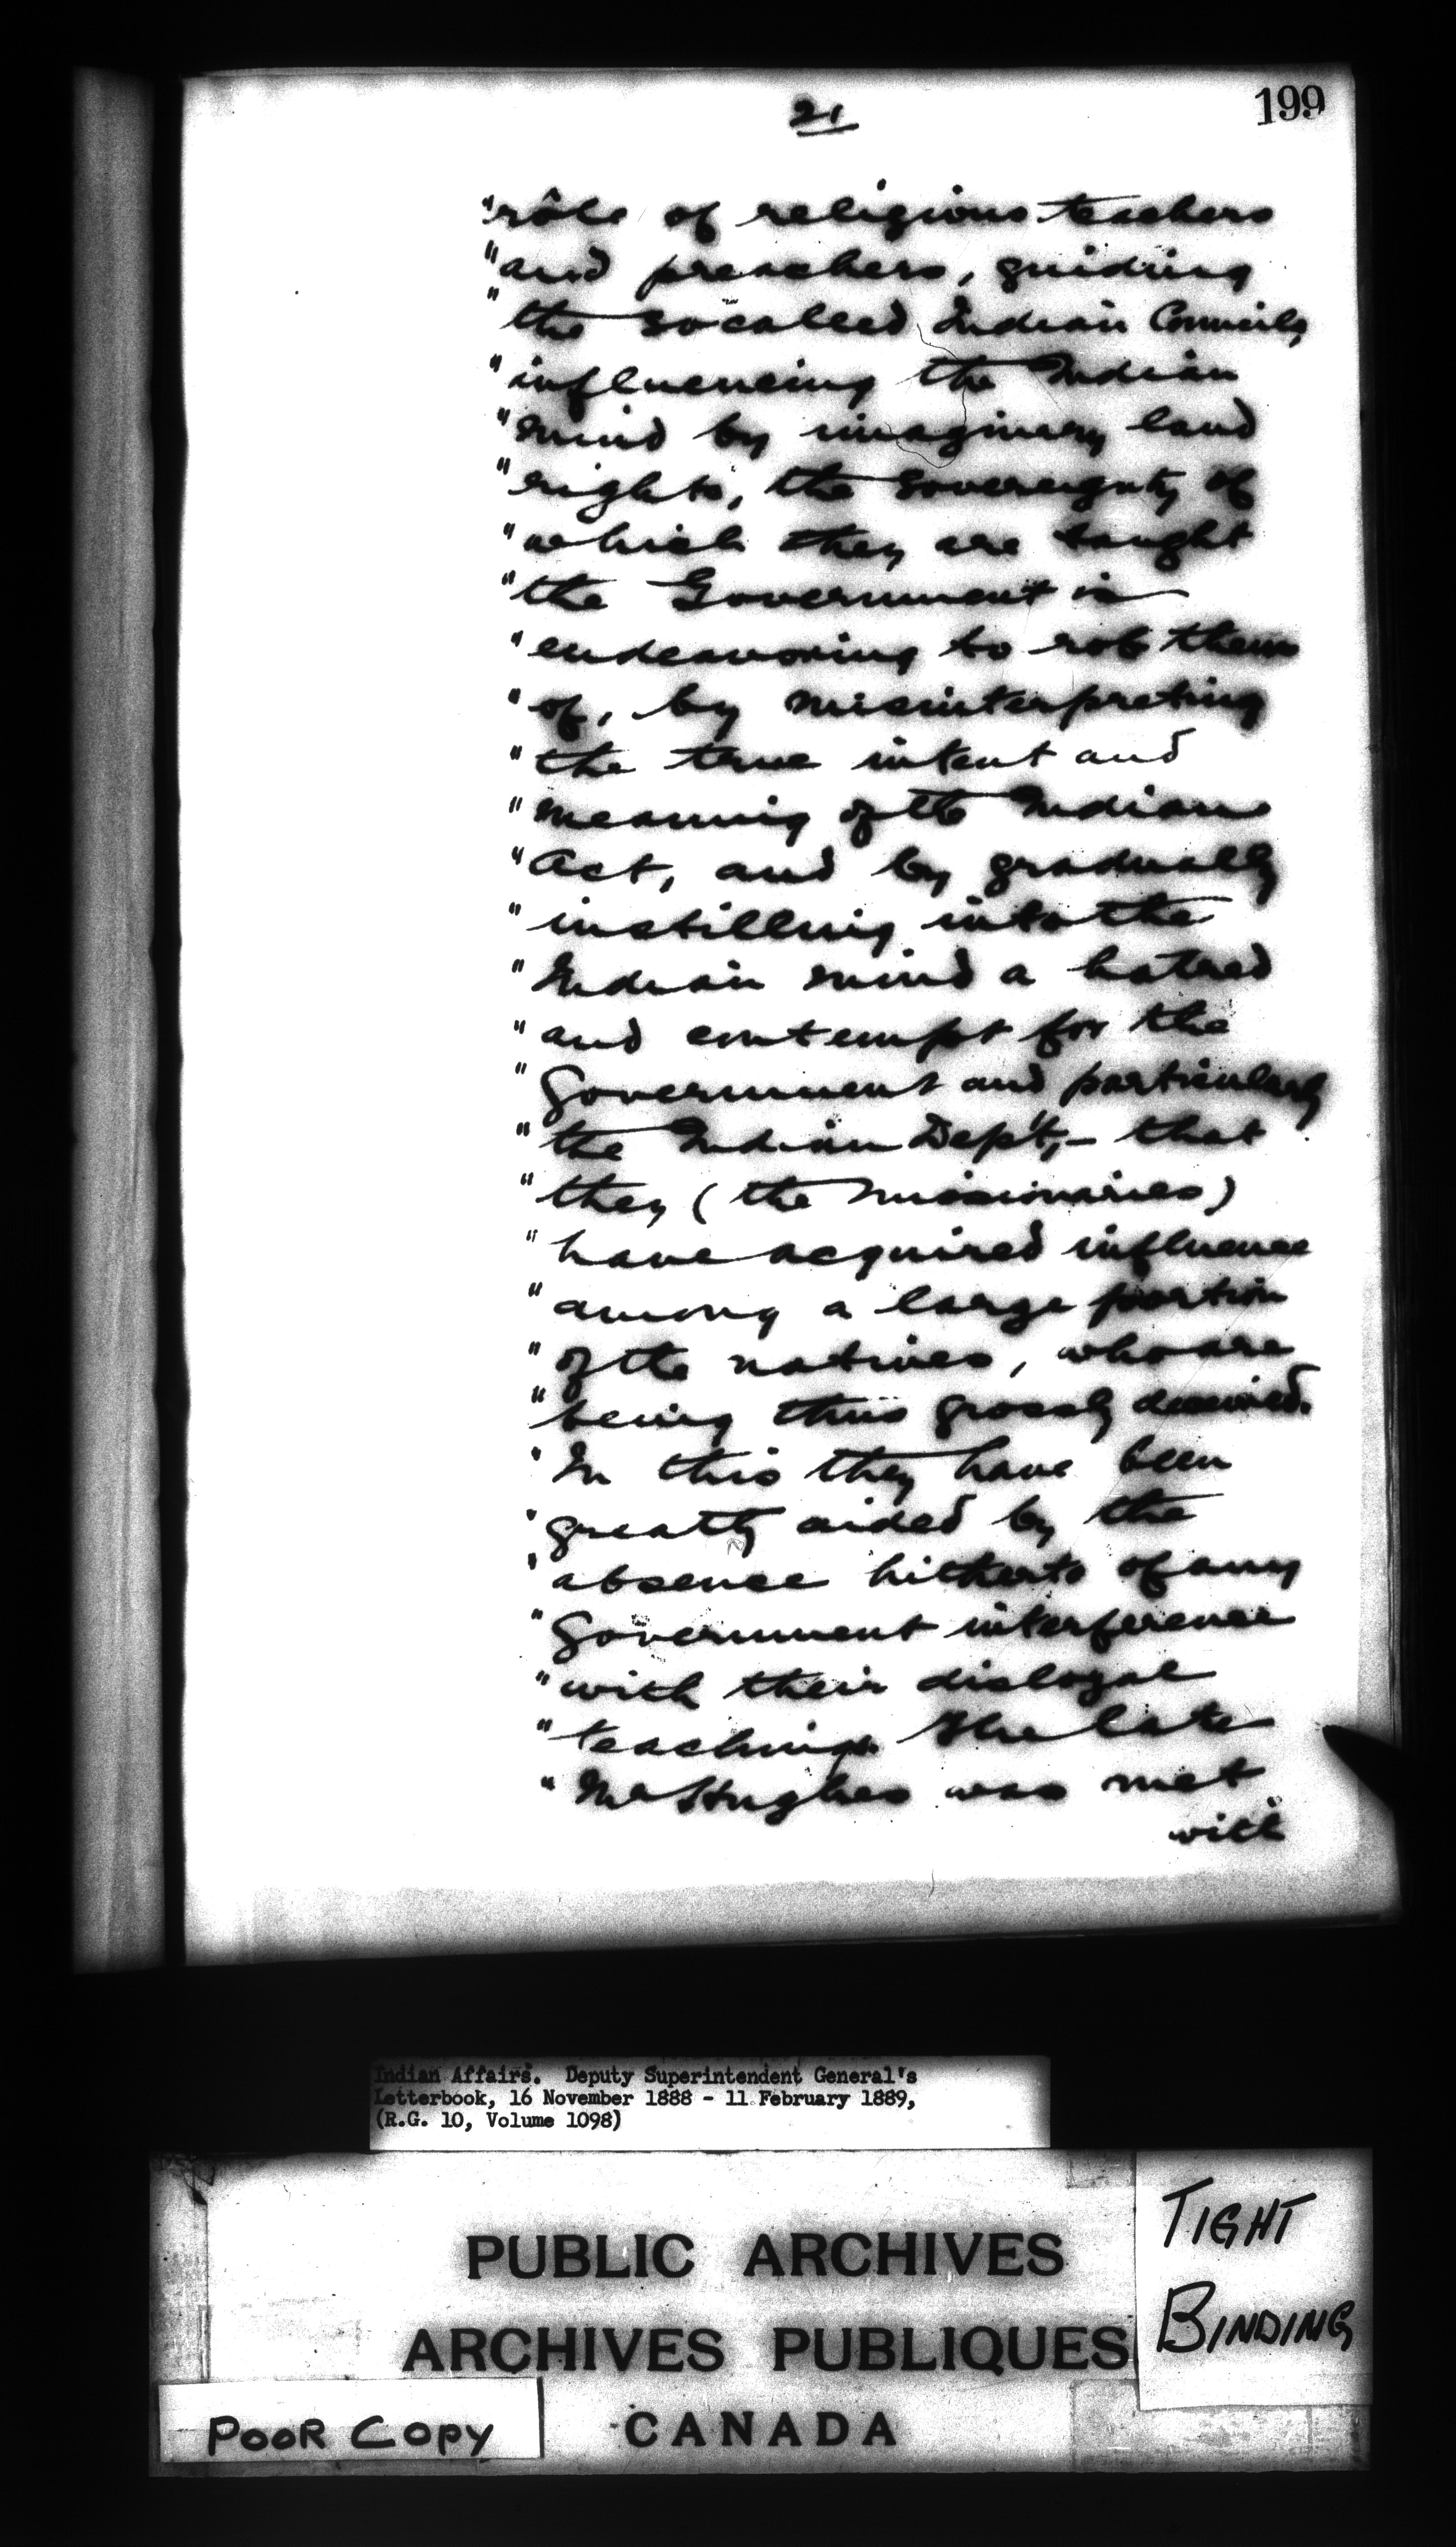 199
21
"rôle of religious teachers
"and preachers, guiding
"the so called Indian Councils,
"influencing the Indian
"mind by imaginary land
"rights, the sovereignty of
"which they are taught
"the Government is
"endeavoring to rob them
"of, by misinterpreting
"the true intent and
"meaning of the Indian
"Act, and by gradually
"instilling into the
"Indian mind a hatred
"and contempt for the
"Government and particularly
"the Indian Dep't,- that
"they (the missionaries)
"have acquired influence
"among a large portion
"of the natives, who are
"being thus grossly deceived.
"In this they have been
"greatly aided by the
"absence hitherto of any
"Government interference
"with their disloyal
"teachings. The late
"Mr Hughes was met
with
Indian Affairs. Deputy Superintendent General's
Letterbook, 16 November 1888 - 11 February 1889,
(R.G. 10, Volume 1098)
PUBLIC ARCHIVES
ARCHIVES PUBLIQUES
CANADA
TIGHT
BINDING
POOR COPY